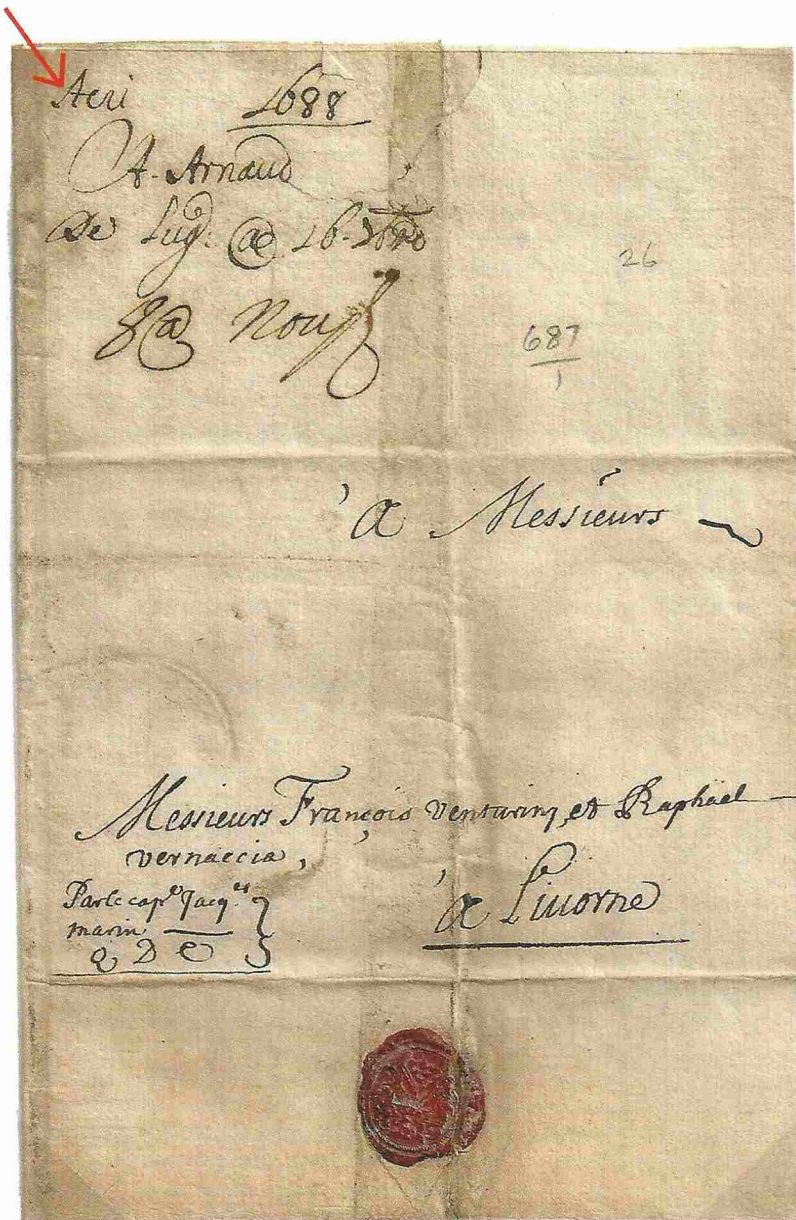 Acri 1688
A. Arnaud
De Lug: @ 16
@ Nou
26
687
1
à Messieurs
Messieurs François venturin, et Raphael
vernaccia,
Par le cap.e Jacq.es
marin
Q D C
à Liuorne